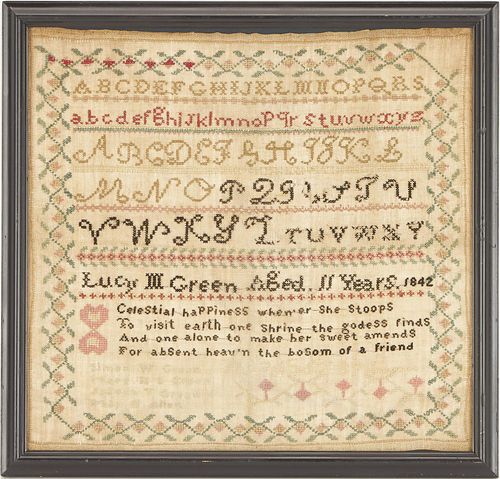 ABCDEFGHIJKLMNOPQRS
abcdefghijklmnopqrstuvwxyz
ABCDEFGHIJKL
MNOPQRSTU
VWXYZ TUVWXY
Lucy M Green Aged 11 Years 1842
Celestial happiness when'er She Stoops
To visit earth one Shrine the godess finds
And one alone to make her sweet amends
For absent heav'n the bosom of a friend